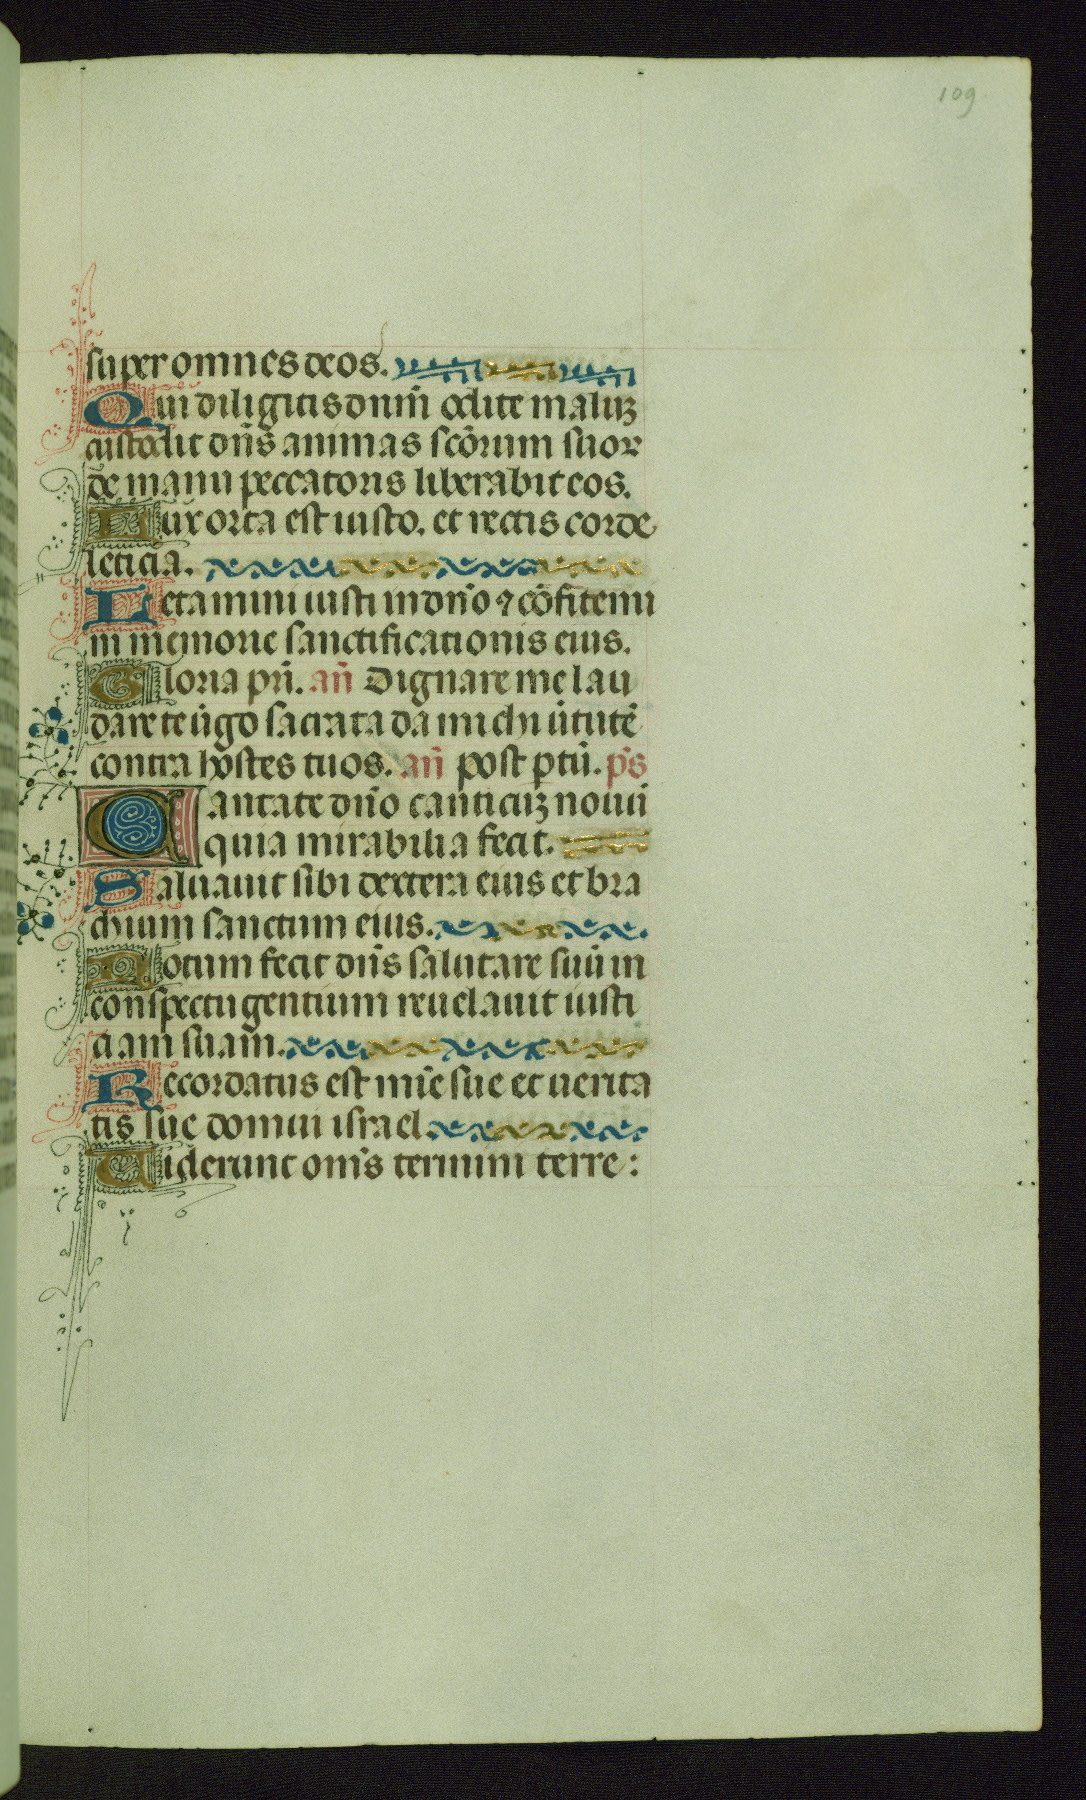 109
super omnes deos.
Qui diligitis dnm̄ odite maluʒ
custodit dn̄s animas scōrum suoꝝ
de manu peccatoris liberabit eos.
Lux orta est iusto. et rectis corde
leticia.
Letamini iusti in dn̄o ⁊ cōfitemi
in memorie sanctificationis eius.
Gloria pr̄i. an̄ Dignare me lau
dare te ūgo sacrata da michi ūtutē
contra hostes tuos. an̄ post ptū. ps̄
Cantate dn̄o canticuʒ nouū
quia mirabilia fecit.
Saluauit sibi dextera eius et bra
chium sanctum eius.
Notum fecit dn̄s salutare suū in
conspectu gentium reuelauit iusti
ciam suam.
Recordatus est mīe sue et uerita
tis sue domui israel.
Uiderunt om̄s termini terre :